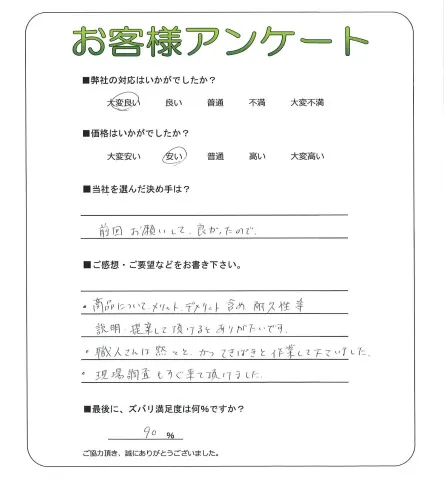 お客様アンケート
■弊社の対応はいかがでしたか？
大変良い 良い 普通 不満 大変不満
■価格はいかがでしたか？
大変安い 安い 普通 高い 大変高い
■当社を選んだ決め手は？
前回お願いして、良かったので.
■ご感想・ご要望などをお書き下さい。
・商品について.メリット.デメリット含め 耐久性等
説明 提案して頂けるとありがたいです.
・職人さんは黙々と.かつてきぱきと作業して下さいました.
・現場調査もすぐ来て頂けました.
■最後に、ズバリ満足度は何％ですか？
90 ％
ご協力頂き、誠にありがとうございました。